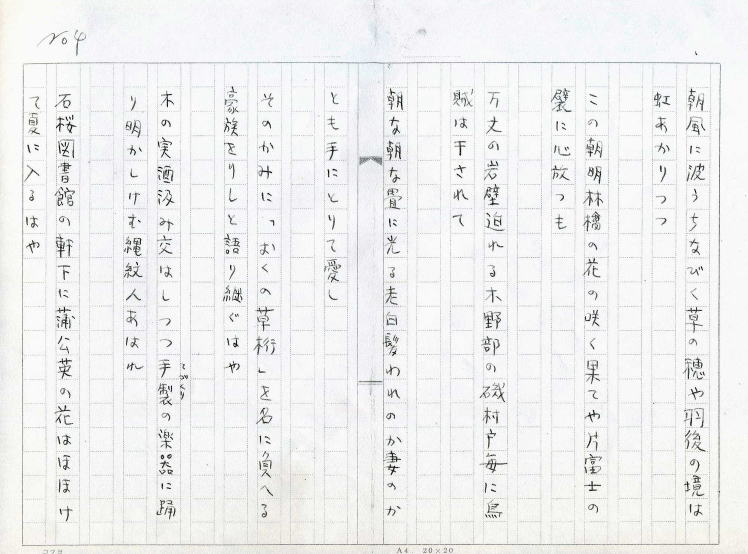 No 4
朝風に波うちなびく草の穂や羽後の境は
虹あかりつつ
この朝明林檎の花の咲く果てや片富士の
襞に心放つも
万丈の岩壁迫れる木野部の磯村戸毎に烏
賊は干されて
朝な朝な畳に光る老白髪われのか妻のか
とも手にとりて愛し
そのかみに「おくの草桁」を名に負へる
豪族をりしと語り継ぐはや
木の実酒汲み交はしつつ手製の楽器に踊
てづくり
り明かしけむ縄紋人あはれ
石桜図書館の軒下に蒲公英の花はほほけ
て夏に入るはや
A4 20×20